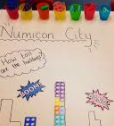 Numicon City
How tall
are the buildings?
BOOM!